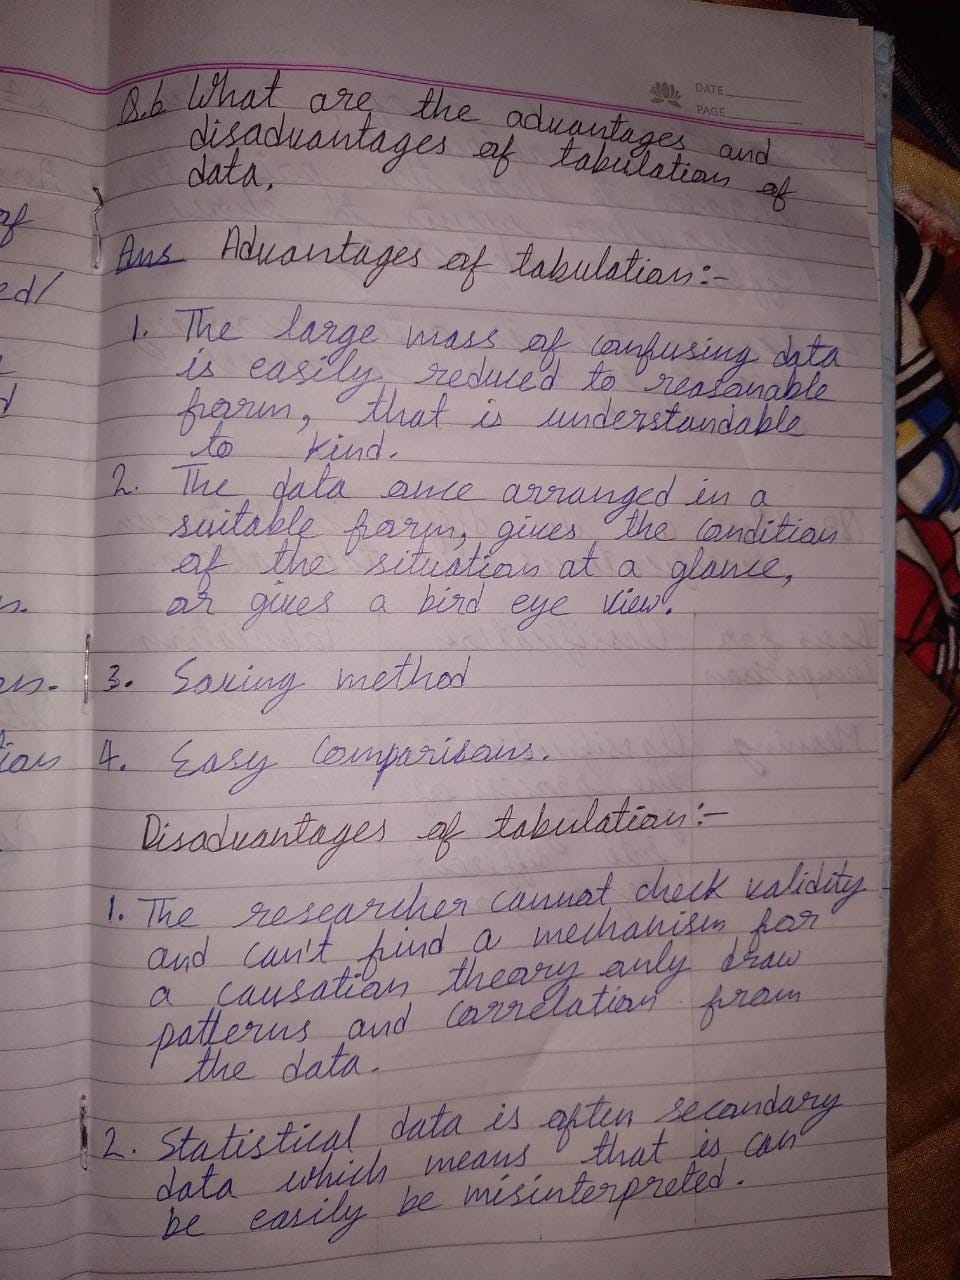 DATE
PAGE
Q.6 What are the advantages and
disadvantages of tabulation of
data.
Ans Advantages of tabulation:-
1. The large mass of confusing data
is easily reduced to reasonable
form, that is understandable
to kind.
2. The data once arranged in a
suitable form, gives the condition
of the situation at a glance,
or gives a bird eye view.
3. Saving method
4. Easy Comparisons.
Disadvantages of tabulation:-
1. The researcher cannot check validity
and can't find a mechanism for
a causation theory only draw
patterns and correlation from
the data.
2. Statistical data is often secondary
data which means that is can
be easily be misinterpreted.